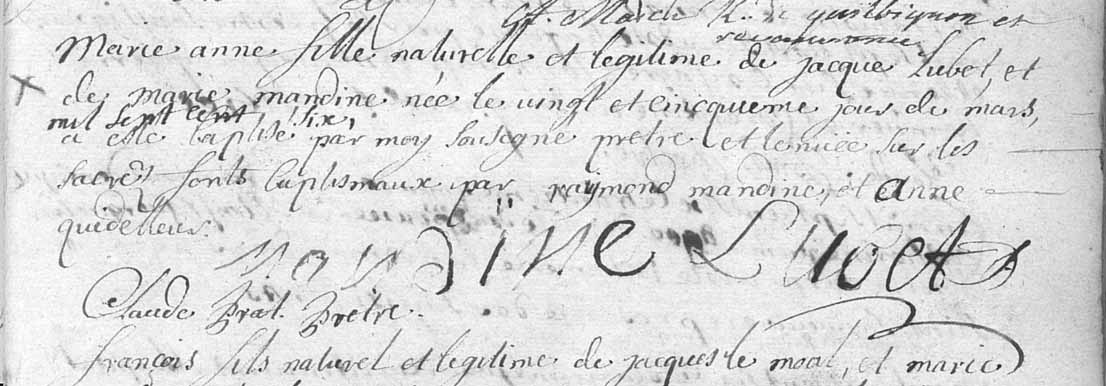 gt. March R. de guilbignon et
recouvrance
Marie anne fille naturelle et legitime de jacque Lubet, et
de marie mandine née le vingt et cincqueme jour de mars,
mil sept cent six,
a esté baptisé par moy sousegné pretre et tenuée sur les
sacrés fonts baptismaux par raymond mandine, et anne
quedelleur.
mandine Lubet
Claude Prat. Prêtre.
françois fils naturel et legitime de jacques le moal, et marie